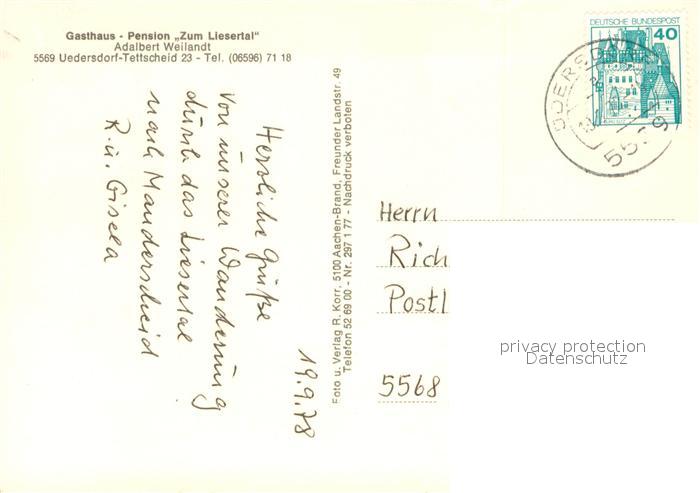 Gasthaus - Pension „Zum Liesertal"
Adalbert Weilandt
5569 Uedersdorf-Tettscheid 23 - Tel. (06596) 71 18
19.9.78
Herzliche Grüße
von unserer Wanderung
durch das Liesertal
nach Manderscheid
R. u. Gisela
Foto u. Verlag R. Korr, 5100 Aachen-Brand, Freunder Landstr. 49
Telefon 52 69 00 - Nr. 297 1 77 - Nachdruck verboten
DEUTSCHE BUNDESPOST
40
Herrn
Rich
Postl
5568
privacy protection
Datenschutz